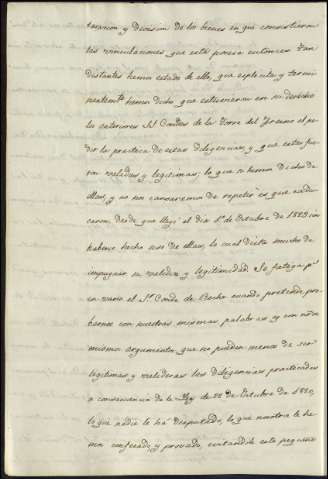 tasacion y division de los bienes en que consistieran
las vinculaciones que este poseia entonces. Tan
distantes hemos estado de ello, que esplicita y termi
nantemte hemos dicho que estuvieron en su derecho
los anteriores SS. Condes de la Torre del Fresno al pe
dir la práctica de estas diligencias, y que estas fue
ron válidas y legítimas; lo que si hemos dicho de
ellas, y no nos cansaremos de repetir es, que cadu
caron desde que llegó el dia 1.º de Octubre de 1823 sin
haberse hecho uso de ellas, lo cual dista mucho de
impugnar su validez y legitimidad. Se fatiga pr
en vano el Sr. Conde de               cuando pretende pro
barnos con nuestras mismas palabras y con nues
mismos argumentos, que no pueden menos de ser
legítimas y valederas las diligencias practicadas
a consecuencia de la Ley de 11 de Octubre de 1820,
lo que nadie le ha disputado, lo que nosotros le he
mos confesado y probado, evitandole este pequeño